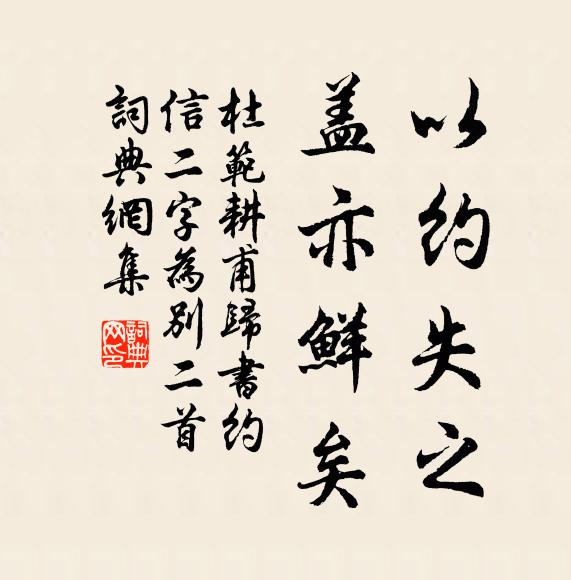 以約失之
蓋亦鮮矣
杜範耕甫歸書約
信二字為別二首
詞典網集
詞典
网印